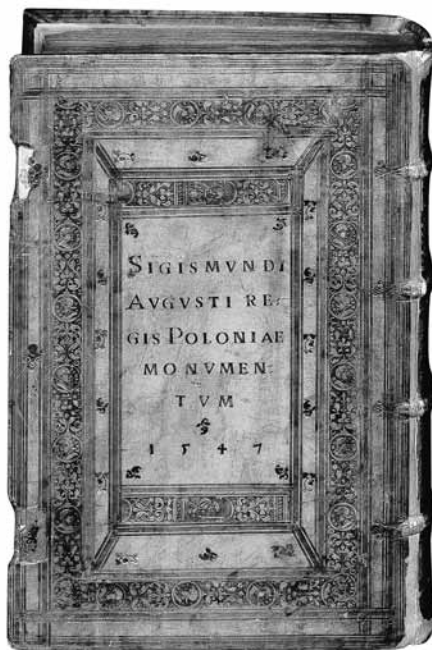 SIGISMVNDI
AVGVSTI RE-
GIS POLONIAE
MONVMEN
TVM
1547